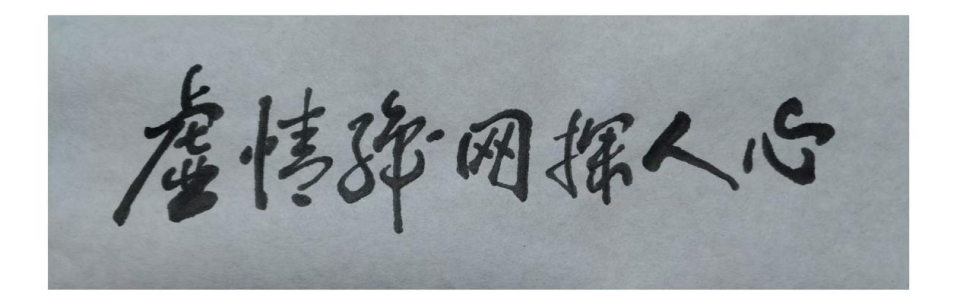 虚情网探人心